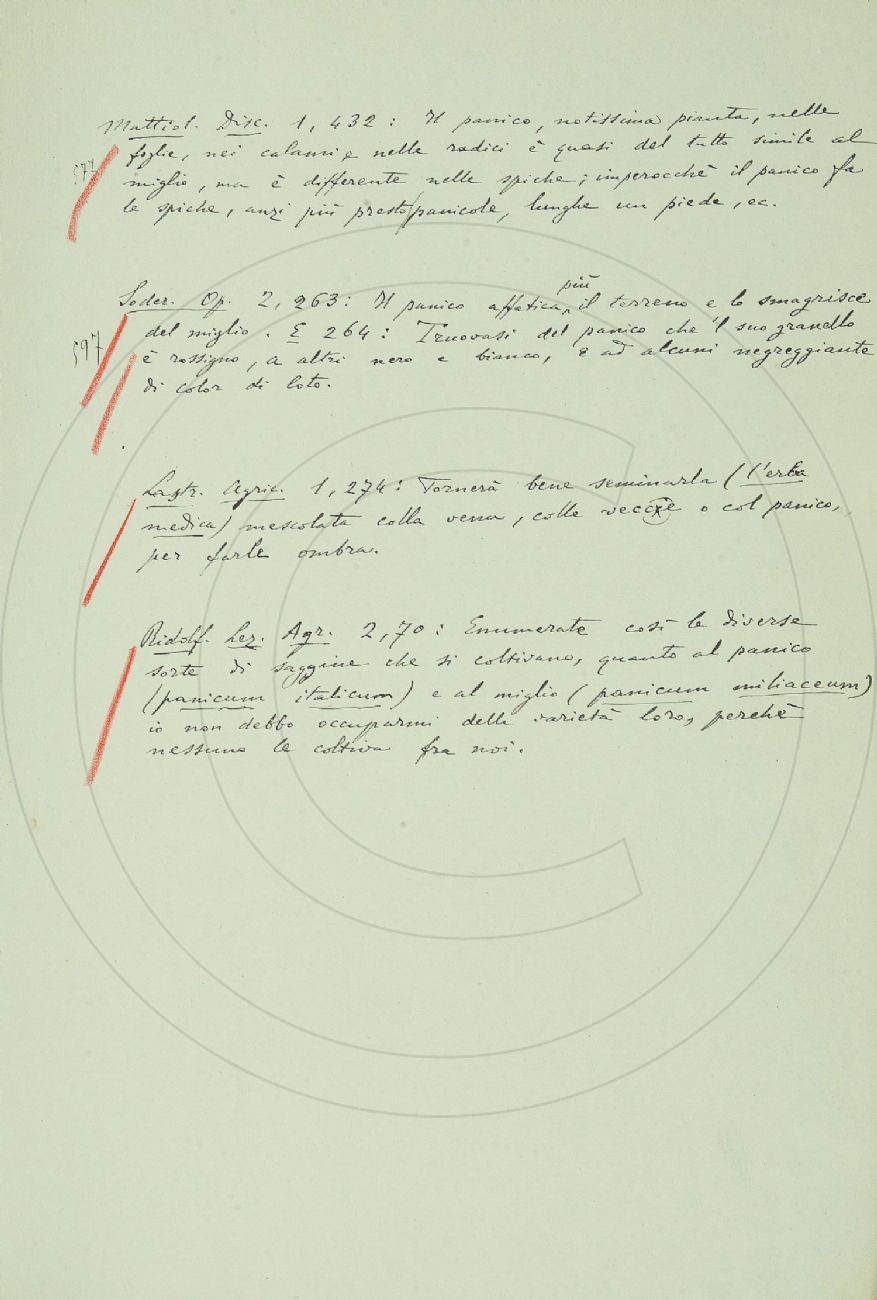 Mattiol. Disc. 1, 432: Il panico, notissima pianta, nelle
foglie, nei calami e nelle radici è quasi del tutto simile al
miglio, ma è differente nelle spiche; imperocchè il panico fa
le spiche, anzi più presto panicole, lunghe un piede, ec.
più
Soder. Op. 2, 263: Il panico affatica il terreno e lo smagrisce
597
del miglio. E 264: Truovasi del panico che 'l suo granello
è rossigno, a altri nero e bianco, e ad alcuni negreggiante
di color di loto.
Lastr. Agric. 1, 274: Tornerà bene seminarla (l'erba
medica) mescolata colla vena, colle vecce o col panico,
per farle ombra.
Ridolf. Lez. Agr. 2, 70: Enumerate così le diverse
sorte di saggine che si coltivano, quanto al panico
(panicum italicum) e al miglio (panicum miliaceum)
io non debbo occuparmi delle varietà loro, perchè
nessuno le coltiva fra noi.